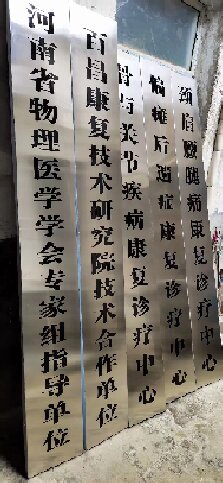 河南省物理医学学会专家组指导单位
百昌康复技术研究院技术合作单位
骨与关节疾病康复诊疗中心
偏瘫后遗症康复诊疗中心
颈肩腰腿病康复诊疗中心